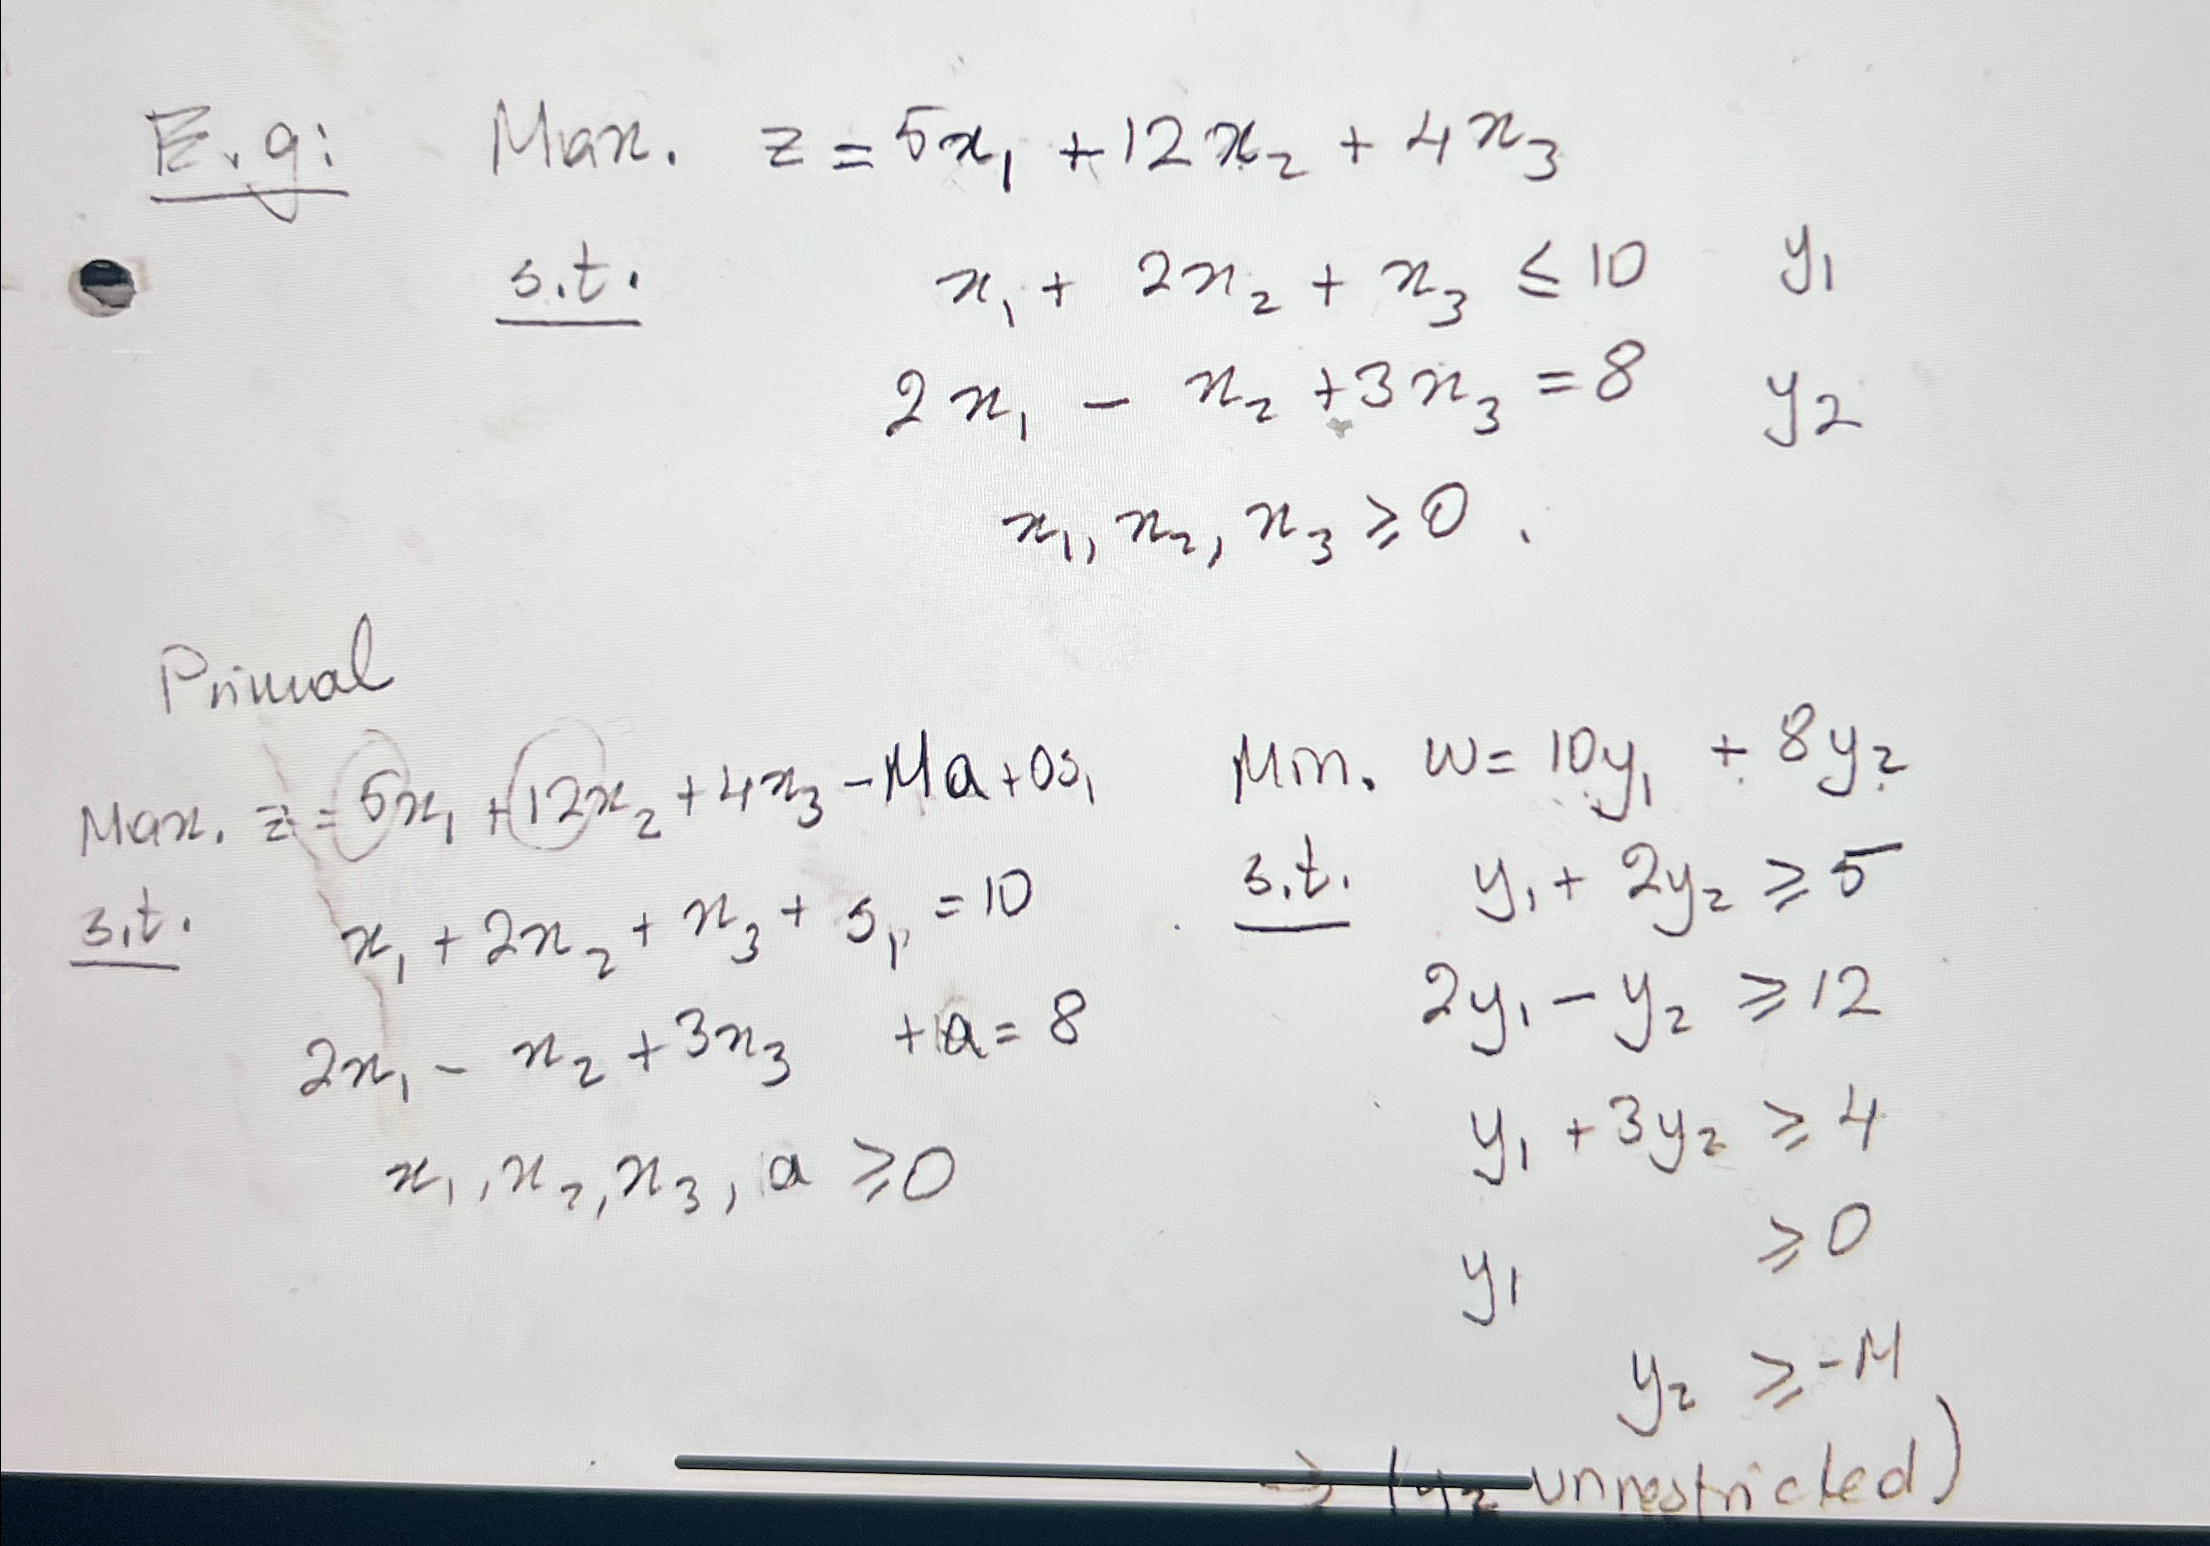 E.g: Max. z = 5x₁ + 12x₂ + 4x₃
s.t. x₁ + 2x₂ + x₃ ≤ 10 y₁
2x₁ - x₂ + 3x₃ = 8 y₂
x₁, x₂, x₃ ≥ 0.
Primal
Max. z = 5x₁ + 12x₂ + 4x₃ - Ma + 0s₁
s.t. x₁ + 2x₂ + x₃ + s₁ = 10
2x₁ - x₂ + 3x₃ + a = 8
x₁, x₂, x₃, a ≥ 0
Min. w = 10y₁ + 8y₂
s.t. y₁ + 2y₂ ≥ 5
2y₁ - y₂ ≥ 12
y₁ + 3y₂ ≥ 4
y₁ ≥ 0
y₂ ≥ -M
→ (y₂ unrestricted)